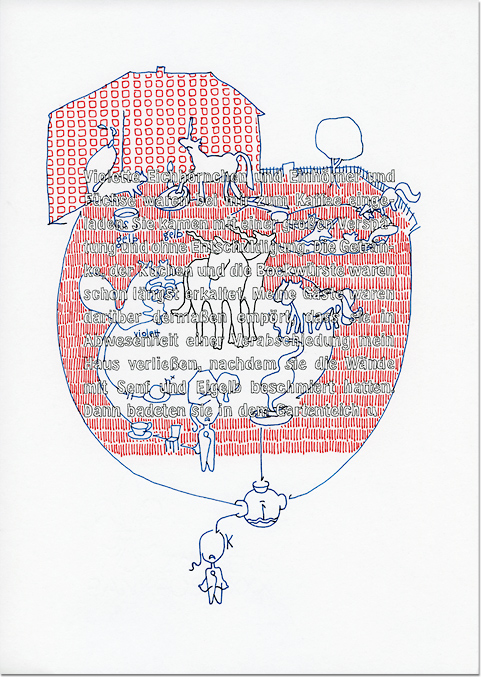 Violette Eichhörnchen und Einhörner und
gelb
Füchse waren bei mir zum Kaffee einge-
laden. Sie kamen mit einer großen Verspä-
tung und ohne Entschuldigung. Die Geträn-
ke, der Kuchen und die Bockwürste waren
schon längst erkaltet. Meine Gäste waren
darüber dermaßen empört, dass sie in
violett
Abwesenheit einer Verabschiedung mein
Haus verließen, nachdem sie die Wände
mit Senf und Eigelb beschmiert hatten.
Dann badeten sie in dem Gartenteich u.
K